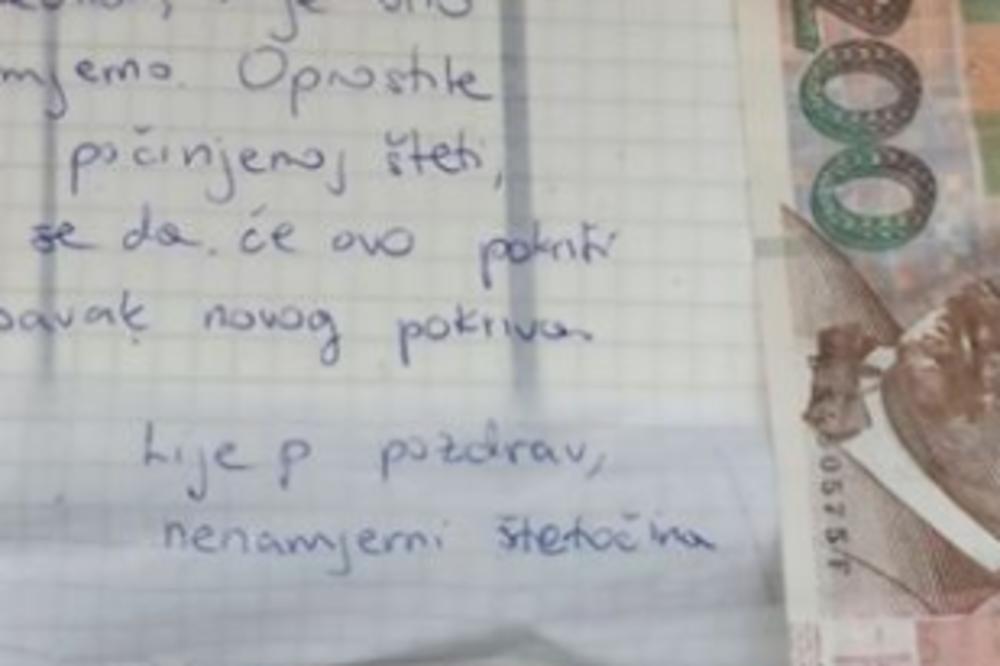 je ono
mjemo. Oprostite
počinjenoj šteti,
se da će ovo pokriti
bavak novog pokriva.
Lijep pozdrav,
nenamjerni štetočina
200
0575T